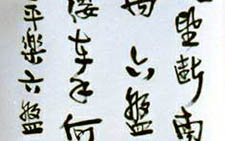 望斷南
萬六盤
纓在手何
平樂六盤